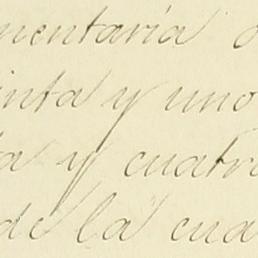 mentaria
inta y uno
ta y cuatro
de la cua